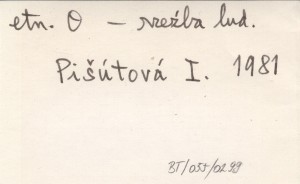 etn. O – rzeźba lud.
Pišútová I. 1981
BT/055/0299